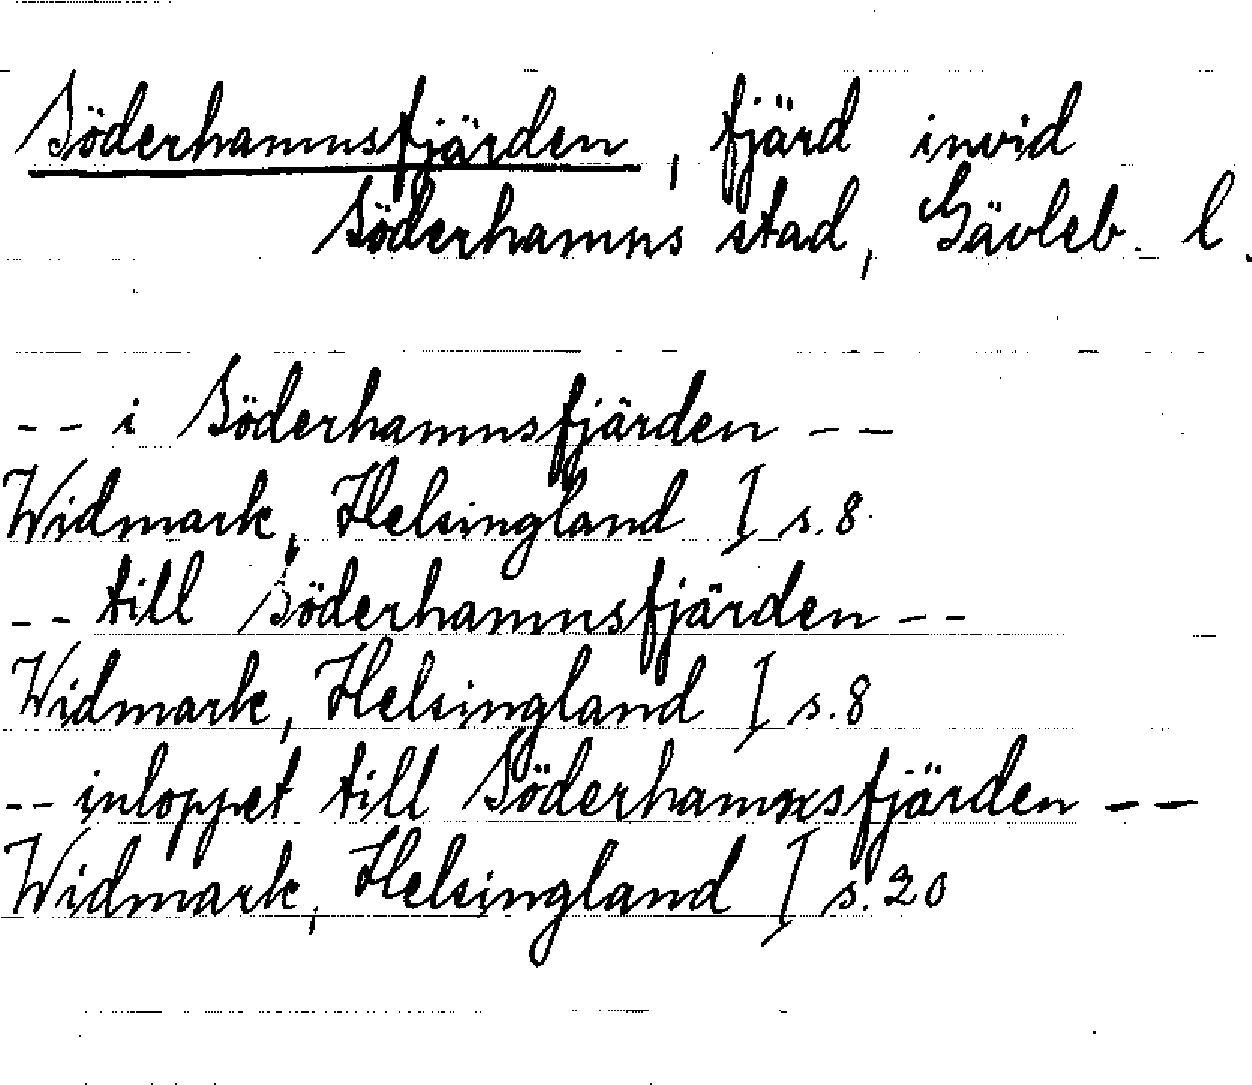 Söderhamnsfjärden, fjärd invid
Söderhamns stad, Gävleb. l.
-- i Söderhamnsfjärden --
Widmark, Helsingland I s. 8
-- till Söderhamnsfjärden --
Widmark, Helsingland I s. 8
-- inloppet till Söderhamnsfjärden --
Widmark, Helsingland I s. 20